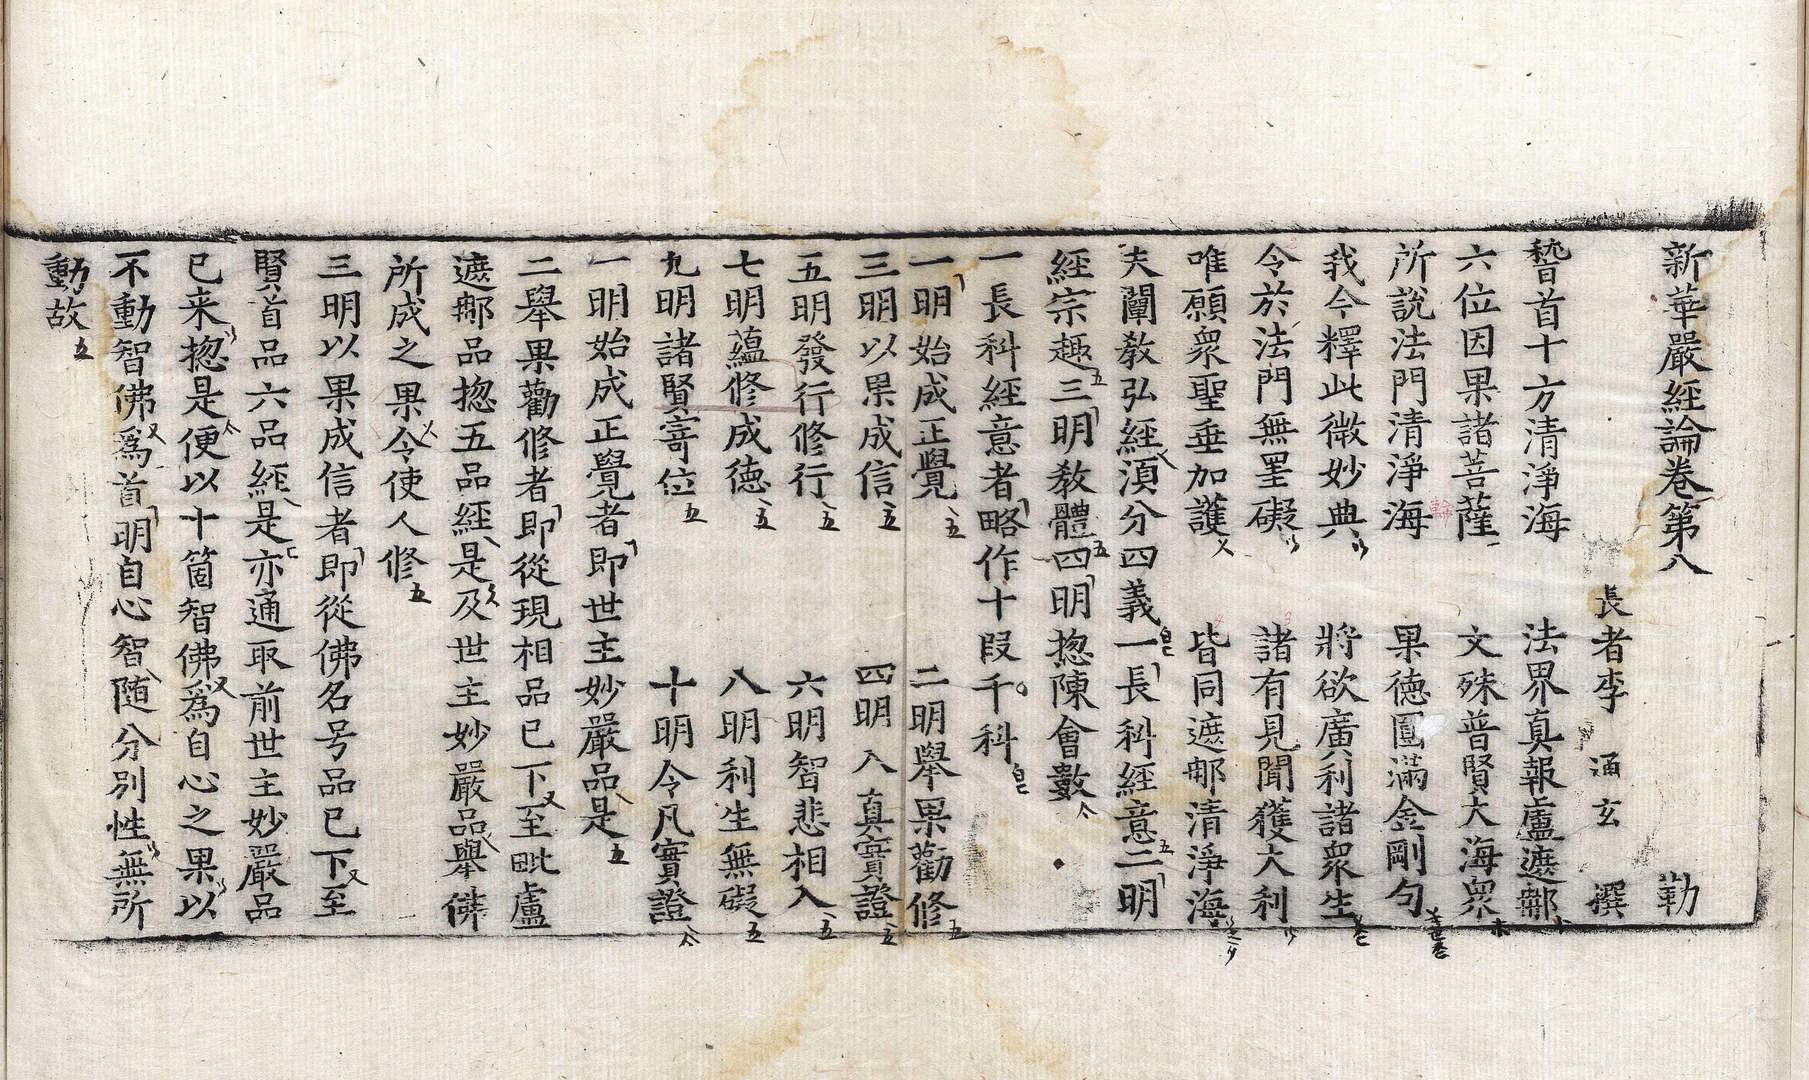 新華嚴經論卷第八 勒
長者李 通玄 撰
稽首十方清淨海 法界真報盧遮那
六位因果諸菩薩 文殊普賢大海衆
所說法門清淨海 果德圓滿金剛句
我今釋此微妙典 將欲廣利諸衆生
令於法門無罣礙 諸有見聞獲大利
唯願衆聖垂加護 皆同遮那清淨海
夫闡敎弘經湏分四義一長科經意二明
經宗趣三明敎體四明揔陳會數
一長科經意者略作十段千科
一明始成正覺 二明舉果勸修
三明以果成信 四明入真實證
五明發行修行 六明智悲相入
七明蘊修成德 八明利生無礙
九明諸賢寄位 十明令凡實證
一明始成正覺者即世主妙嚴品是
二舉果勸修者即從現相品已下至毗盧
遮那品揔五品經是及世主妙嚴品舉佛
所成之果令使人修
三明以果成信者即從佛名号品已下至
賢首品六品經是亦通取前世主妙嚴品
已来揔是便以十箇智佛爲自心之果以
不動智佛爲首明自心智隨分別性無所
動故